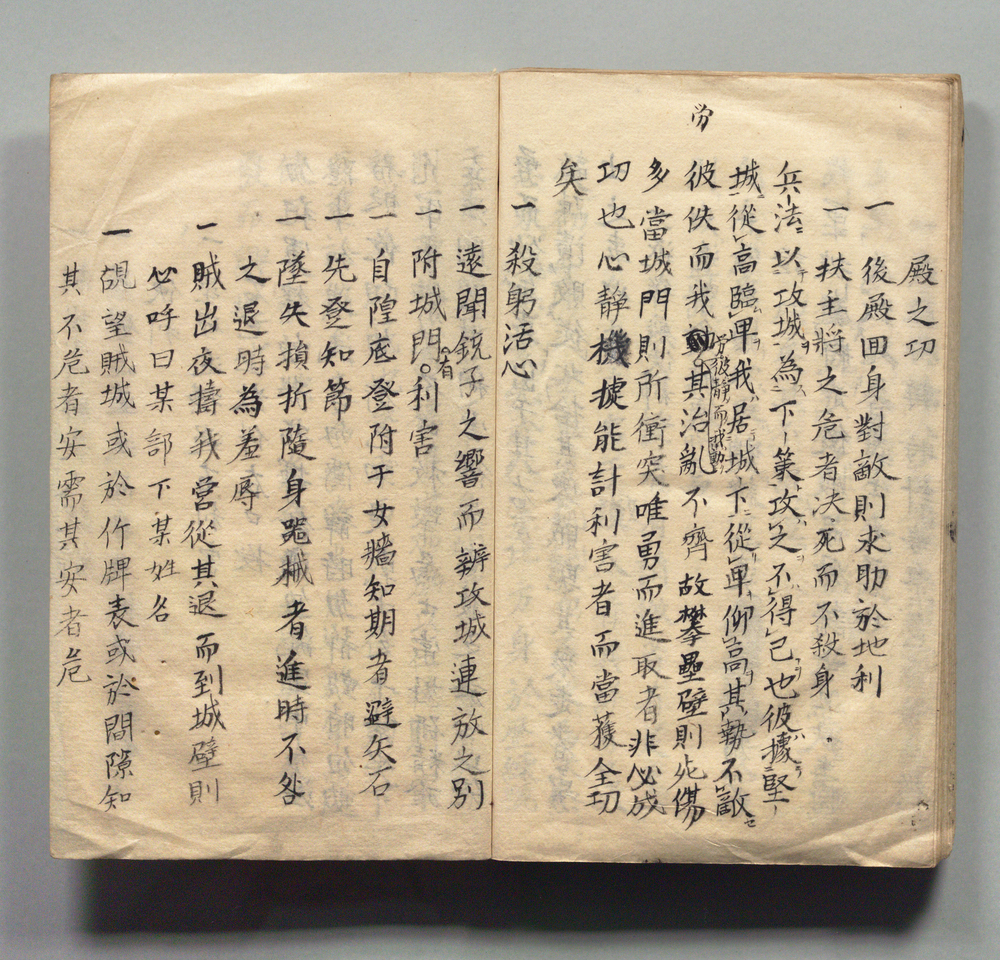 殿之功
一 後殿回身對敵則求助於地利
一 扶主將之危者决死而不殺身
兵法以攻城為下策攻之不得已也彼據堅
城從高臨卑我居城下從卑仰高其勢不敵
彼佚而我勞彼静而我動其治亂不齊故攀壘壁則死傷
多當城門則所衝突唯勇而進取者非必成
功也心静機捷能計利害者而當獲全功
矣
一 殺躬活心
一 遠聞銃子之響而辨攻城連放之別
一 附城門有利害
一 自隍底登附于女牆知期者避矢石
一 先登知節
一 墜失損折隨身器械者進時不咎
之退時為羞辱
一 賊出夜擣我營從其退而到城壁則
必呼曰某部下某姓名
一 覘望賊城或於竹牌表或於間隙知
其不危者安需其安者危